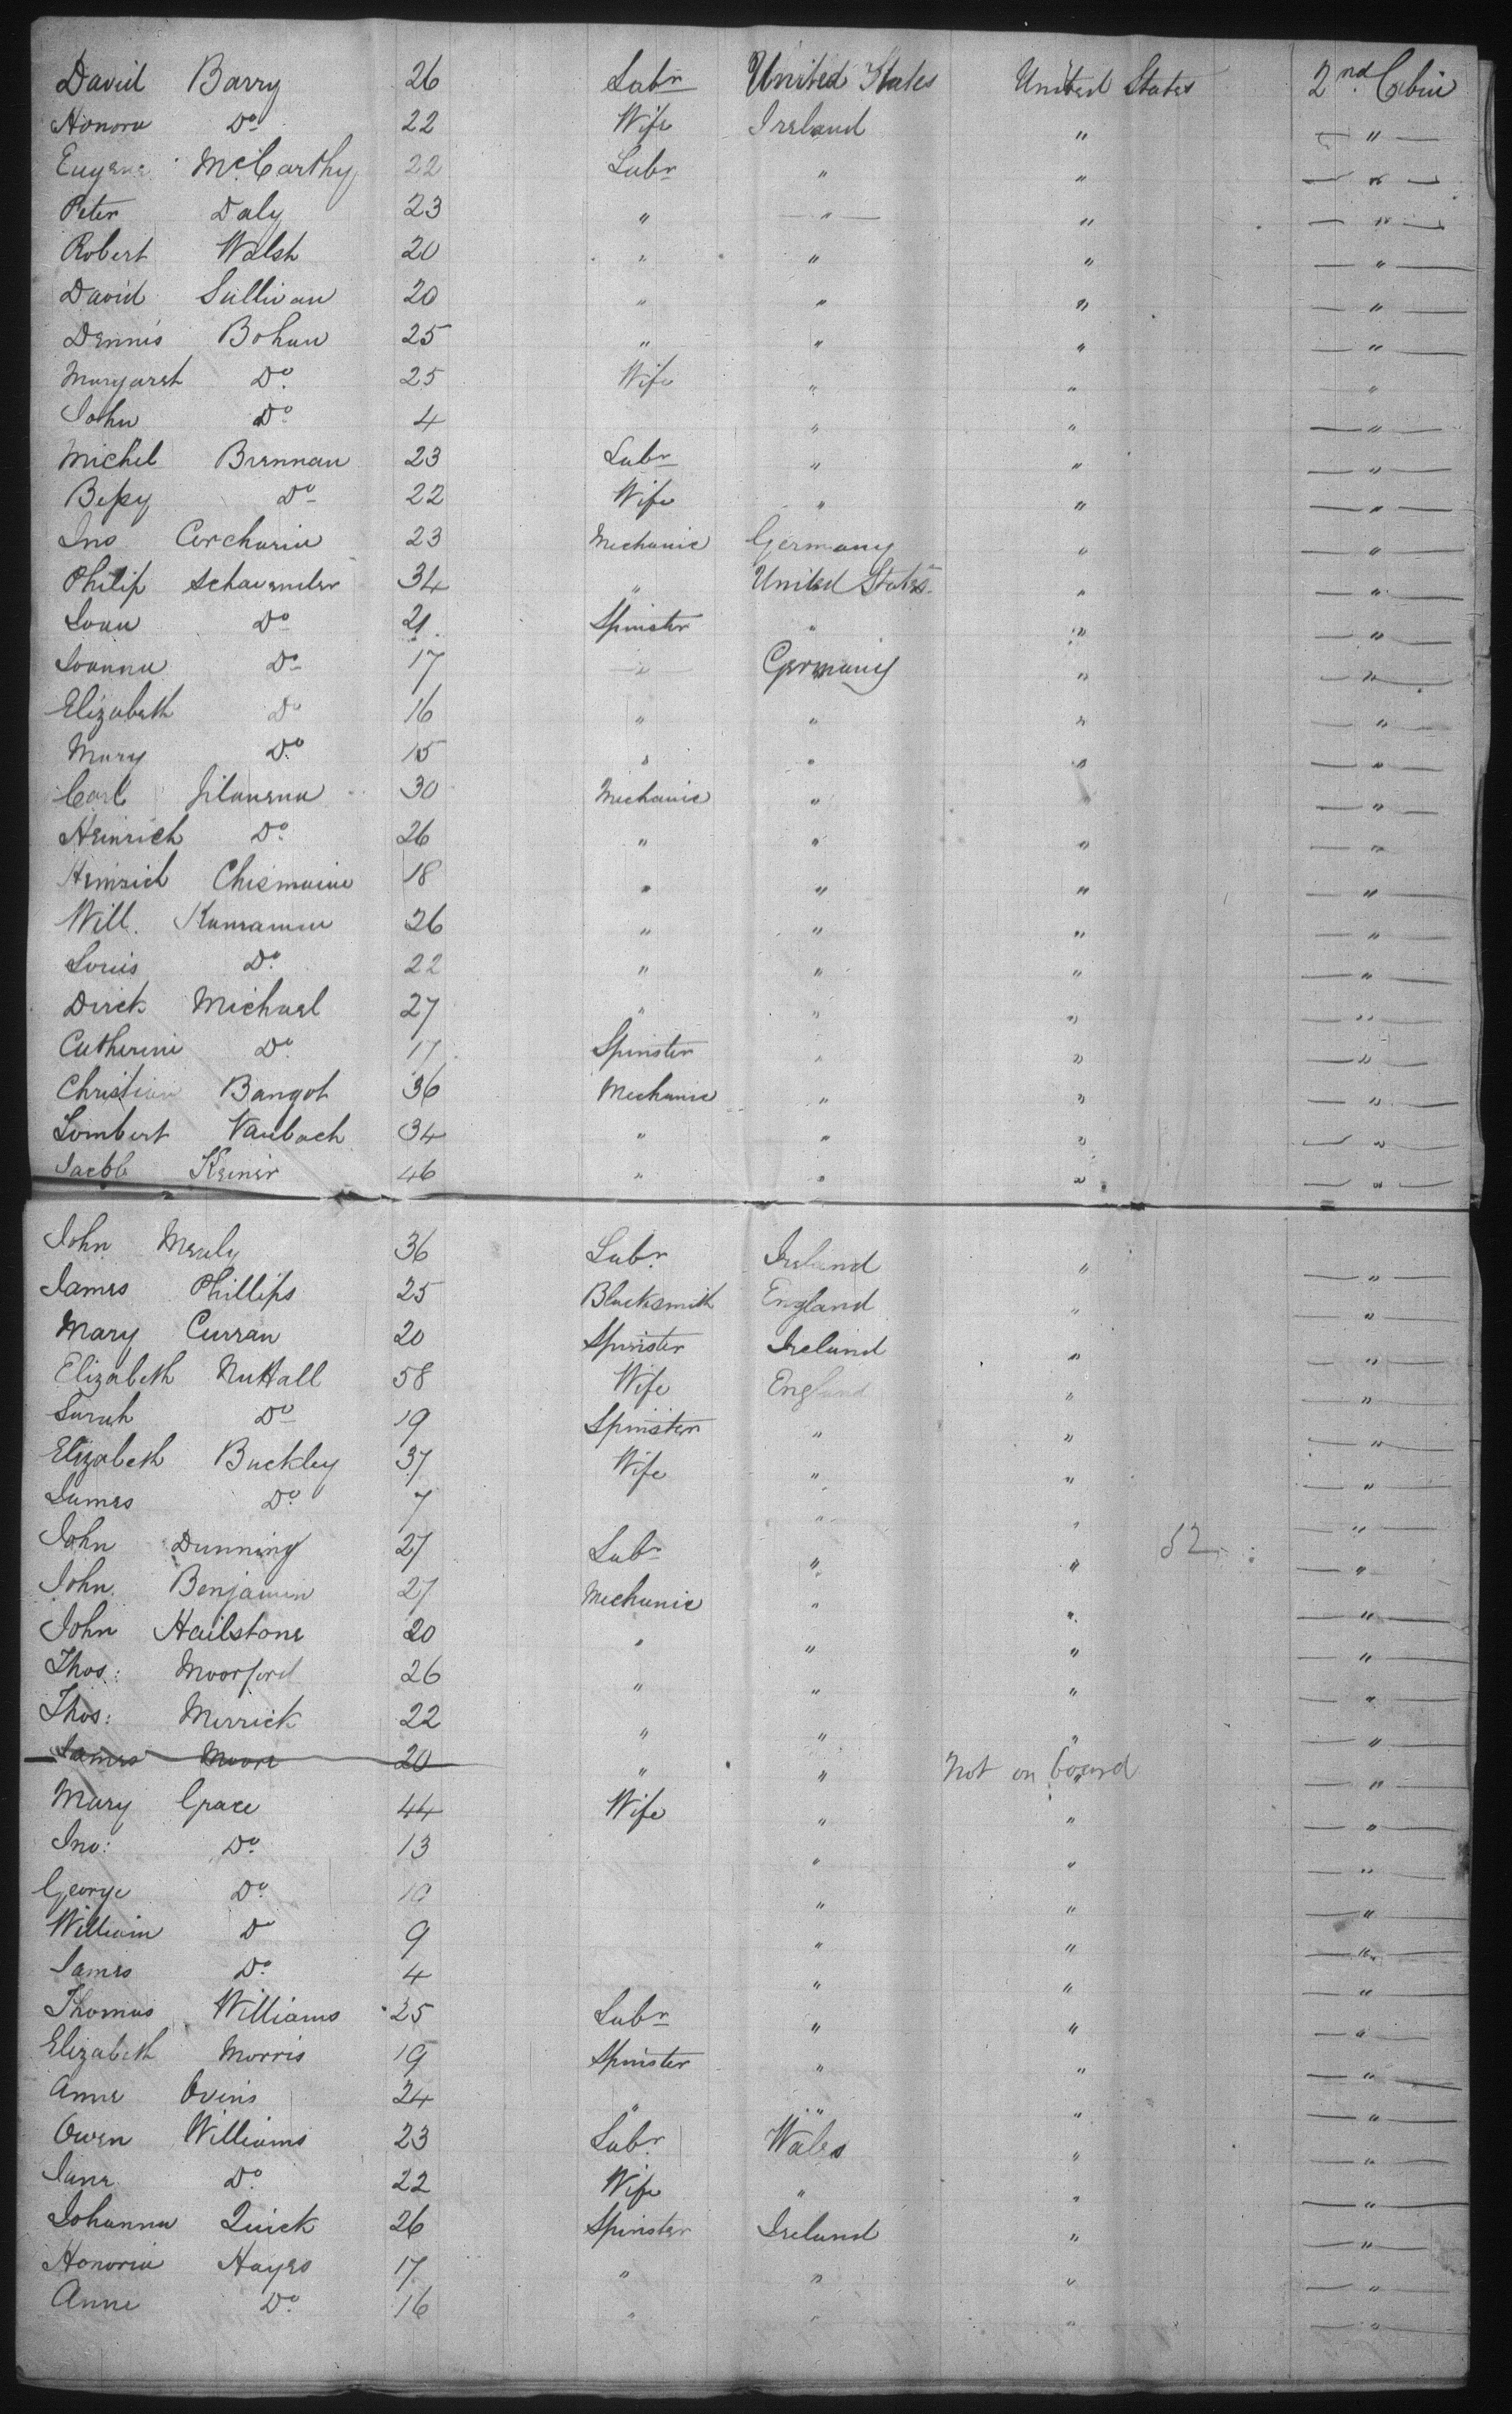 David Barry 26 Labr United States United States 2nd Cabin
Honora Do 22 Wife Ireland " "
Eugene McCarthy 22 Labr " " "
Peter Daly 23 " " " "
Robert Walsh 20 " " " "
David Sullivan 20 " " " "
Dennis Bohan 25 " " " "
Margaret Do 25 Wife " " "
John Do 4 " " "
Michel Brennan 23 Labr " " "
Bessy Do 22 Wife " " "
Jno 23 Mechanic Germany " "
Philip 34 " United States " "
Do 21 Spinster " " "
Joanna Do 17 " Germany " "
Elizabeth Do 16 " " " "
Mary Do 15 " " " "
Carl 30 Mechanic " " "
Heinrich Do 26 " " " "
Heinrich 18 " " " "
Will. 26 " " " "
Louis Do 22 " " " "
Dirck Michael 27 " " " "
Catherine Do 17 Spinster " " "
Christian Bangot 36 Mechanic " " "
Lombert Vaubach 34 " " " "
Jacob Keiner 46 " " " "
John Mealy 36 Labr Ireland " "
James Phillips 25 Blacksmith England " "
Mary Curran 20 Spinster Ireland " "
Elizabeth Nuttall 58 Wife England " "
Sarah Do 19 Spinster " " "
Elizabeth Buckley 37 Wife " " "
James Do 7 " " "
John Dunning 27 Labr " " 52 "
John Benjamin 27 Mechanic " " "
John Hailstone 20 " " " "
Thos: Moorford 26 " " " "
Thos: Merrick 22 " " " "
James Moore 20 " " Not on board " "
Mary Grace 44 Wife " " "
Jno: Do 13 " " "
George Do 10 " " "
William Do 9 " " "
James Do 4 " " "
Thomas Williams 25 Labr " " "
Elizabeth Morris 19 Spinster " " "
Anne Ovens 24 " " " "
Owen Williams 23 Labr Wales " "
Jane Do 22 Wife " " "
Johanna Quick 26 Spinster Ireland " "
Honoria Hayes 17 " " " "
Anne Do 16 " " " "